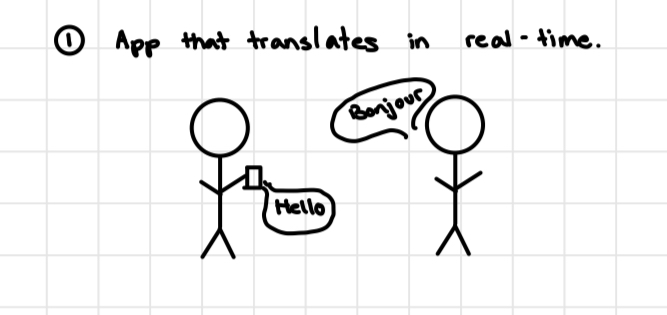 ① App that translates in real-time.
Bonjour
Hello